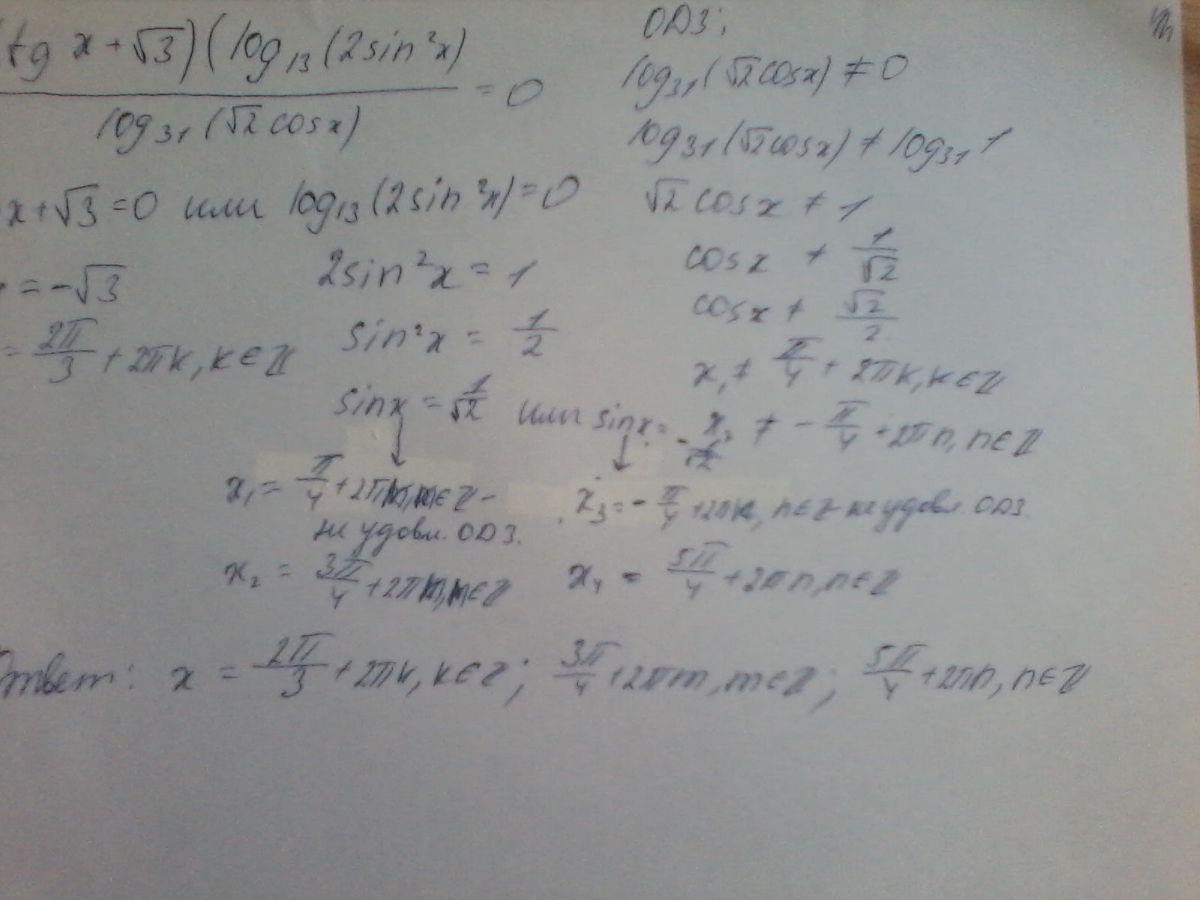 tg x + √3) (log₁₃ (2sin²x)
log₃₁ (√2 cosx)
= 0
x + √3 = 0 или log₁₃ (2sin²x) = 0
= -√3
2sin²x = 1
= 2π/3 + 2πk, k ∈ Z
sin²x = 1/2
sinx = 1/√2 или sinx = -1/√2
x₁ = π/4 + 2πm, m ∈ Z -
не удовл. ОДЗ.
x₃ = -π/4 + 2πn, n ∈ Z не удовл. ОДЗ.
x₂ = 3π/4 + 2πm, m ∈ Z
x₄ = 5π/4 + 2πn, n ∈ Z
ОДЗ:
log₃₁ (√2 cosx) ≠ 0
log₃₁ (√2 cosx) ≠ log₃₁ 1
√2 cosx ≠ 1
cosx ≠ 1/√2
cosx ≠ √2/2
x₁ ≠ π/4 + 2πk, k ∈ Z
x₂ ≠ -π/4 + 2πn, n ∈ Z
Ответ: x = 2π/3 + 2πk, k ∈ Z; 3π/4 + 2πm, m ∈ Z; 5π/4 + 2πn, n ∈ Z